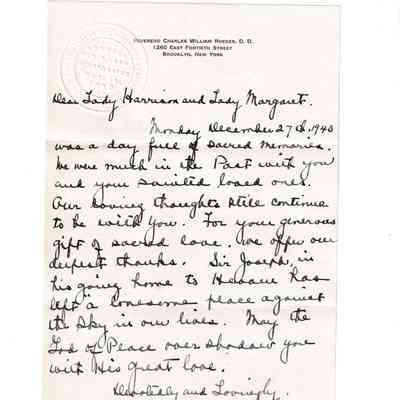 Reverend Charles William Roeder, D. D.
1260 East Fortieth Street
Brooklyn, New York
Dear Lady Harrison and Lady Margaret.
Monday December 27th, 1943
was a day full of sacred memories.
We were much in the Past with you
and your sainted loved ones.
Our loving thoughts still continue
to be with you. For your generous
gift of sacred love, we offer our
deepest thanks. Sir Joseph, in
his going home to Heaven has
left "a lonesome place against
the sky in our lives. May the
God of Peace over shadow you
with His great love.
Devotedly and Lovingly.